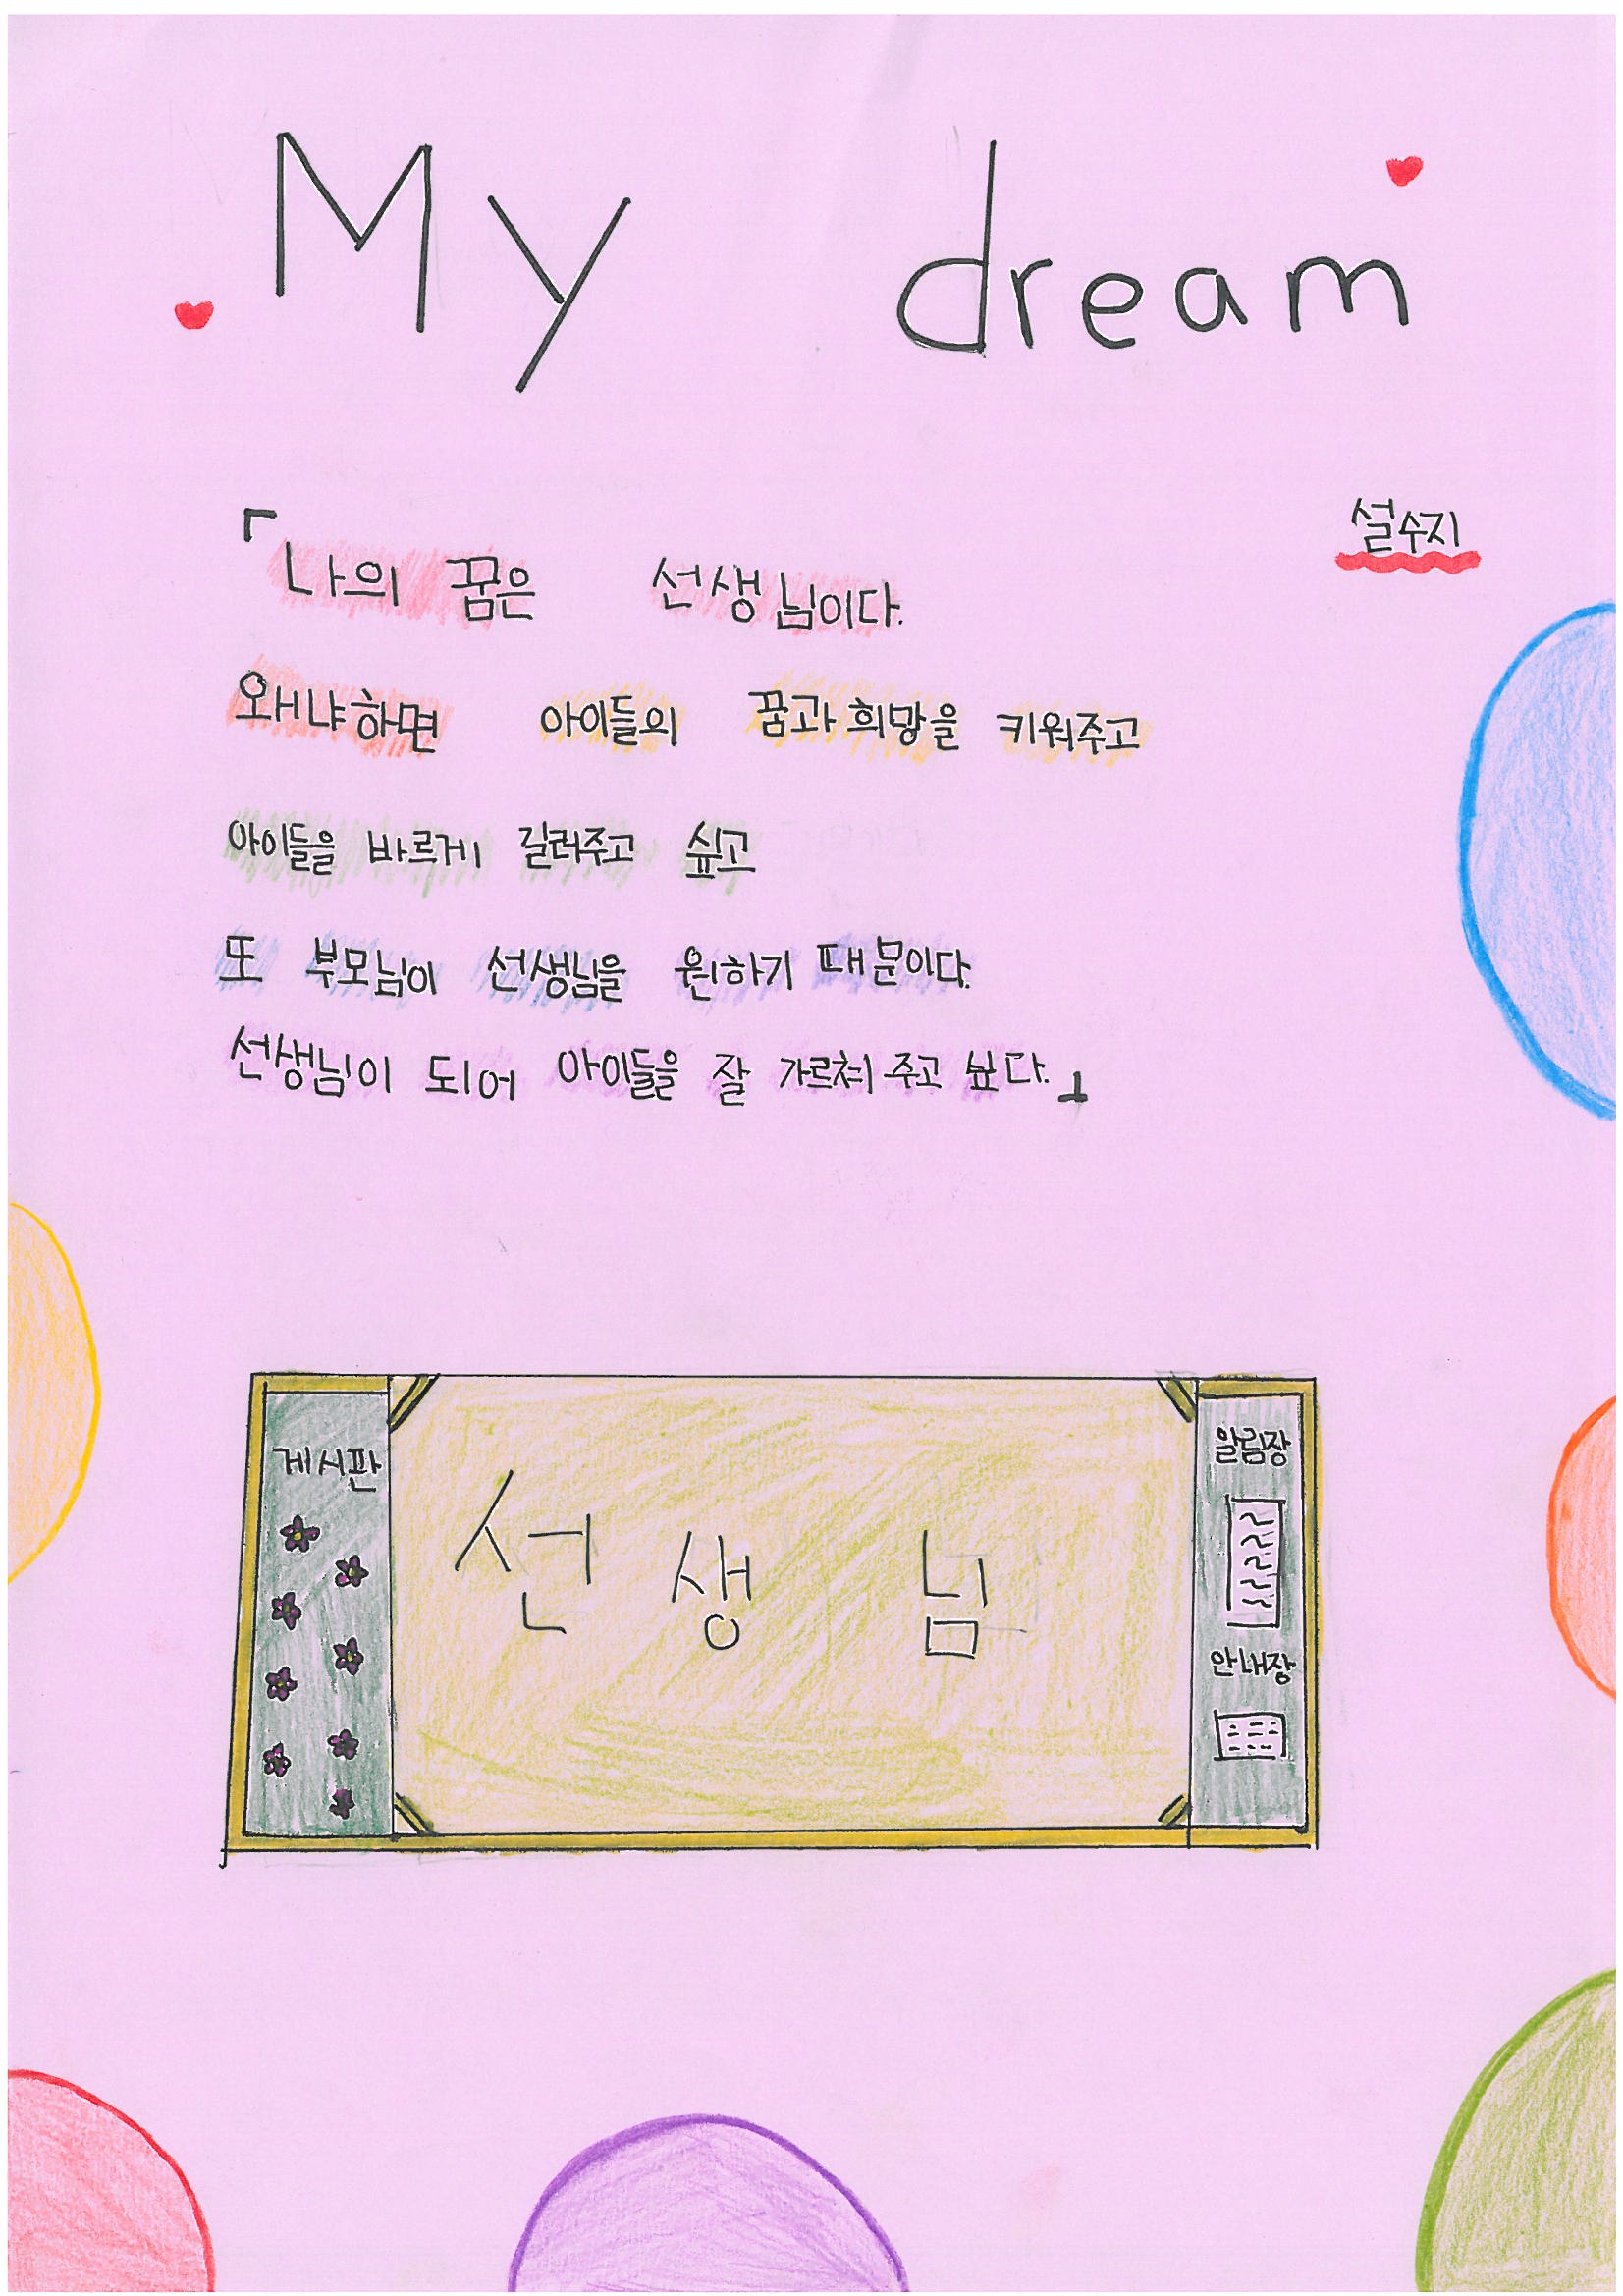 My dream
설수지
「나의 꿈은 선생님이다.
왜냐하면 아이들의 꿈과 희망을 키워주고
아이들을 바르게 길러주고 싶고
또 부모님이 선생님을 원하기 때문이다.
선생님이 되어 아이들을 잘 가르쳐 주고 싶다.」
게시판
선생님
알림장
안내장